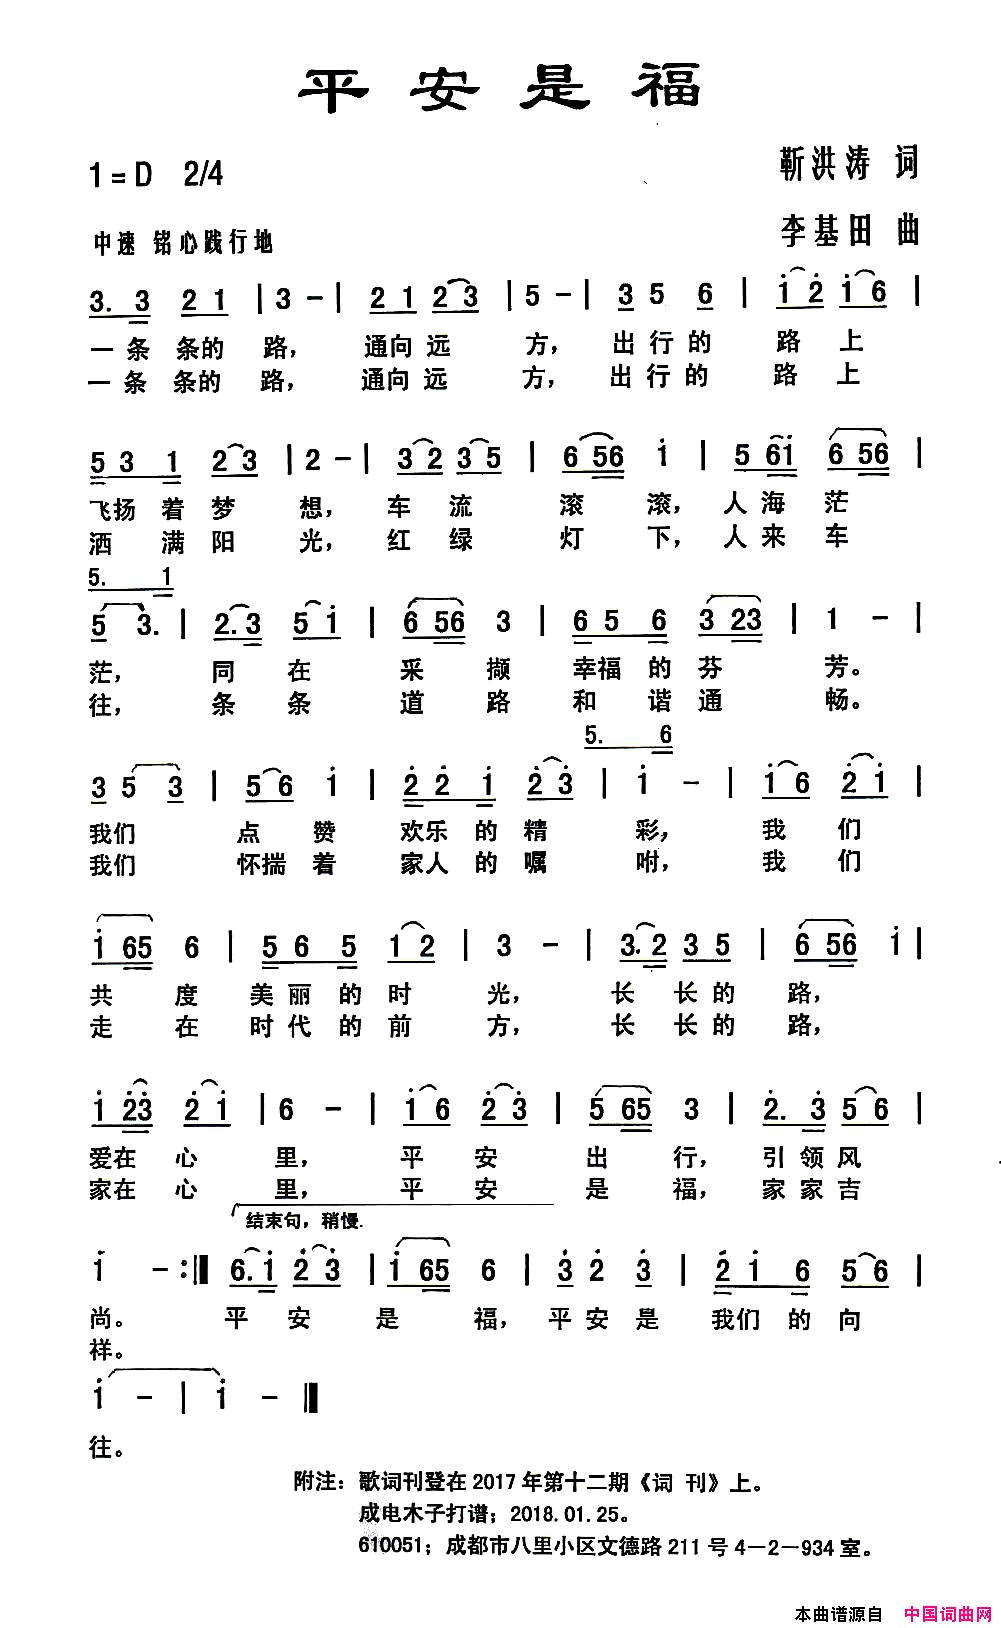 平安是福
1=D 2/4
靳洪涛 词
中速 铭心践行地
李基田 曲
3. 3 2 1 | 3 - | 2 1 2 3 | 5 - | 3 5 6 | i 2 i 6 |
一条 条的 路， 通向 远 方， 出 行 的 路 上
一条 条的 路， 通向 远 方， 出 行 的 路 上
5 3 1 2 3 | 2 - | 3 2 3 5 | 6 56 i | 5 6i 6 56 |
飞扬 着 梦 想， 车 流 滚 滚， 人 海 茫
洒 满 阳 光， 红 绿 灯 下， 人 来 车
5. 1
5 3. | 2. 3 5 i | 6 56 3 | 6 5 6 3 23 | 1 - |
茫， 同 在 采 撷 幸福 的 芬 芳。
往， 条 条 道 路 和 谐 通 畅。
5. 6
3 5 3 | 5 6 i | 2 2 i 2 3 | i - | i 6 2 i |
我们 点 赞 欢乐 的 精 彩， 我 们
我们 怀揣 着 家人 的 嘱 咐， 我 们
i 65 6 | 5 6 5 1 2 | 3 - | 3. 2 3 5 | 6 56 i |
共 度 美 丽 的 时 光， 长 长 的 路，
走 在 时 代 的 前 方， 长 长 的 路，
i 23 2 i | 6 - | i 6 2 3 | 5 65 3 | 2. 3 5 6 |
爱在 心 里， 平 安 出 行， 引 领 风
家在 心 里， 平 安 是 福， 家 家 吉
结束句，稍慢.
i - :| 6. i 2 3 | i 65 6 | 3 2 3 | 2 i 6 5 6 |
尚。 平 安 是 福， 平 安 是 我们 的 向
祥。
i - | i - ‖
往。
附注：歌词刊登在 2017 年第十二期《词 刊》上。
成电木子打谱；2018.01.25。
610051；成都市八里小区文德路 211 号 4－2－934 室。
本曲谱源自 中国词曲网